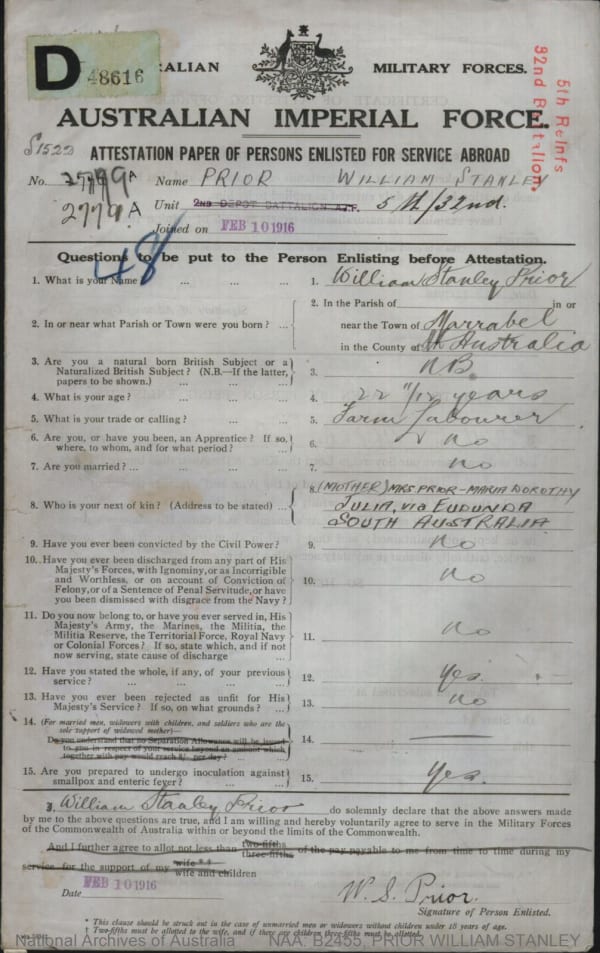 D 48616
ALIAN MILITARY FORCES.
5th Reinfs
32nd Battalion.
AUSTRALIAN IMPERIAL FORCE.
S1522 ATTESTATION PAPER OF PERSONS ENLISTED FOR SERVICE ABROAD
No. 2779A Name PRIOR WILLIAM STANLEY
2779A Unit 2ND DEPOT BATTALION A.I.F. 5th/32nd.
Joined on FEB 10 1916
Questions to be put to the Person Enlisting before Attestation.
48
1. What is your Name? ... ... ... 1. William Stanley Prior
2. In or near what Parish or Town were you born? ... 2. In the Parish of in or
near the Town of Marrabel
in the County of Sth Australia
3. Are you a natural born British Subject or a
Naturalized British Subject? (N.B.—If the latter,
papers to be shown.) ... ... 3. NB
4. What is your age? ... ... ... 4. 22 11/12 years
5. What is your trade or calling? ... ... 5. Farm Labourer
6. Are you, or have you been, an Apprentice? If so,
where, to whom, and for what period? ... 6. no
7. Are you married? ... ... ... ... 7. no
8. Who is your next of kin? (Address to be stated) ... 8. (MOTHER) MRS PRIOR - MARIA DOROTHY
JULIA, via EUDUNDA
SOUTH AUSTRALIA
9. Have you ever been convicted by the Civil Power? ... 9. no
10. Have you ever been discharged from any part of His
Majesty's Forces, with Ignominy, or as Incorrigible
and Worthless, or on account of Conviction of
Felony, or of a Sentence of Penal Servitude, or have
you been dismissed with disgrace from the Navy? 10. no
11. Do you now belong to, or have you ever served in, His
Majesty's Army, the Marines, the Militia, the
Militia Reserve, the Territorial Force, Royal Navy
or Colonial Forces? If so, state which, and if not
now serving, state cause of discharge ... 11. no
12. Have you stated the whole, if any, of your previous
service? ... ... ... ... 12. Yes.
13. Have you ever been rejected as unfit for His
Majesty's Service? If so, on what grounds? ... 13. no
14. (For married men, widowers with children, and soldiers who are the
sole support of widowed mother)—
Do you understand that no Separation Allowance will be issued
to you in respect of your service beyond an amount which
together with pay would reach 8/- per day? ... 14.
15. Are you prepared to undergo inoculation against
smallpox and enteric fever? ... ... 15. Yes.
I, William Stanley Prior do solemnly declare that the above answers made
by me to the above questions are true, and I am willing and hereby voluntarily agree to serve in the Military Forces
of the Commonwealth of Australia within or beyond the limits of the Commonwealth.
And I further agree to allot not less than two-fifths three-fifths of the pay payable to me from time to time during my
service for the support of my wife wife and children
Date FEB 10 1916
W. S. Prior.
Signature of Person Enlisted.
* This clause should be struck out in the case of unmarried men or widowers without children under 18 years of age.
† Two-fifths must be allotted to the wife, and if there are children three-fifths must be allotted.
National Archives of Australia NAA: B2455, PRIOR WILLIAM STANLEY